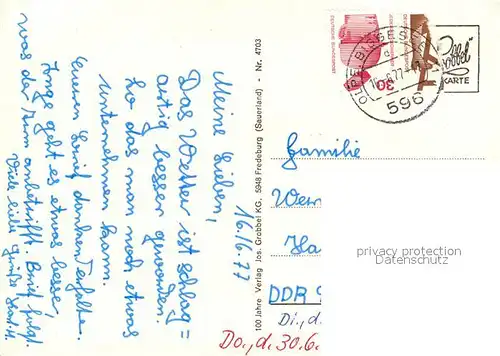 16.6.77
Meine Lieben,
Das Wetter ist schlag=
artig besser geworden.
so das man noch etwas
unternehmen kann.
Euren Brief dankend erhalten.
Inge geht es etwas besser,
was das Turn anbetrifft. Brief folgt.
Viele liebe Grüße
100 Jahre Verlag Jos. Grobbel KG., 5948 Fredeburg (Sauerland) - Nr. 4703
DEUTSCHE BUNDESPOST
30
OLPE BIGGESEE
596
KARTE
Familie
Wer
Ha
privacy protection
Datenschutz
DDR
Di., d.
Do., d. 30.6.